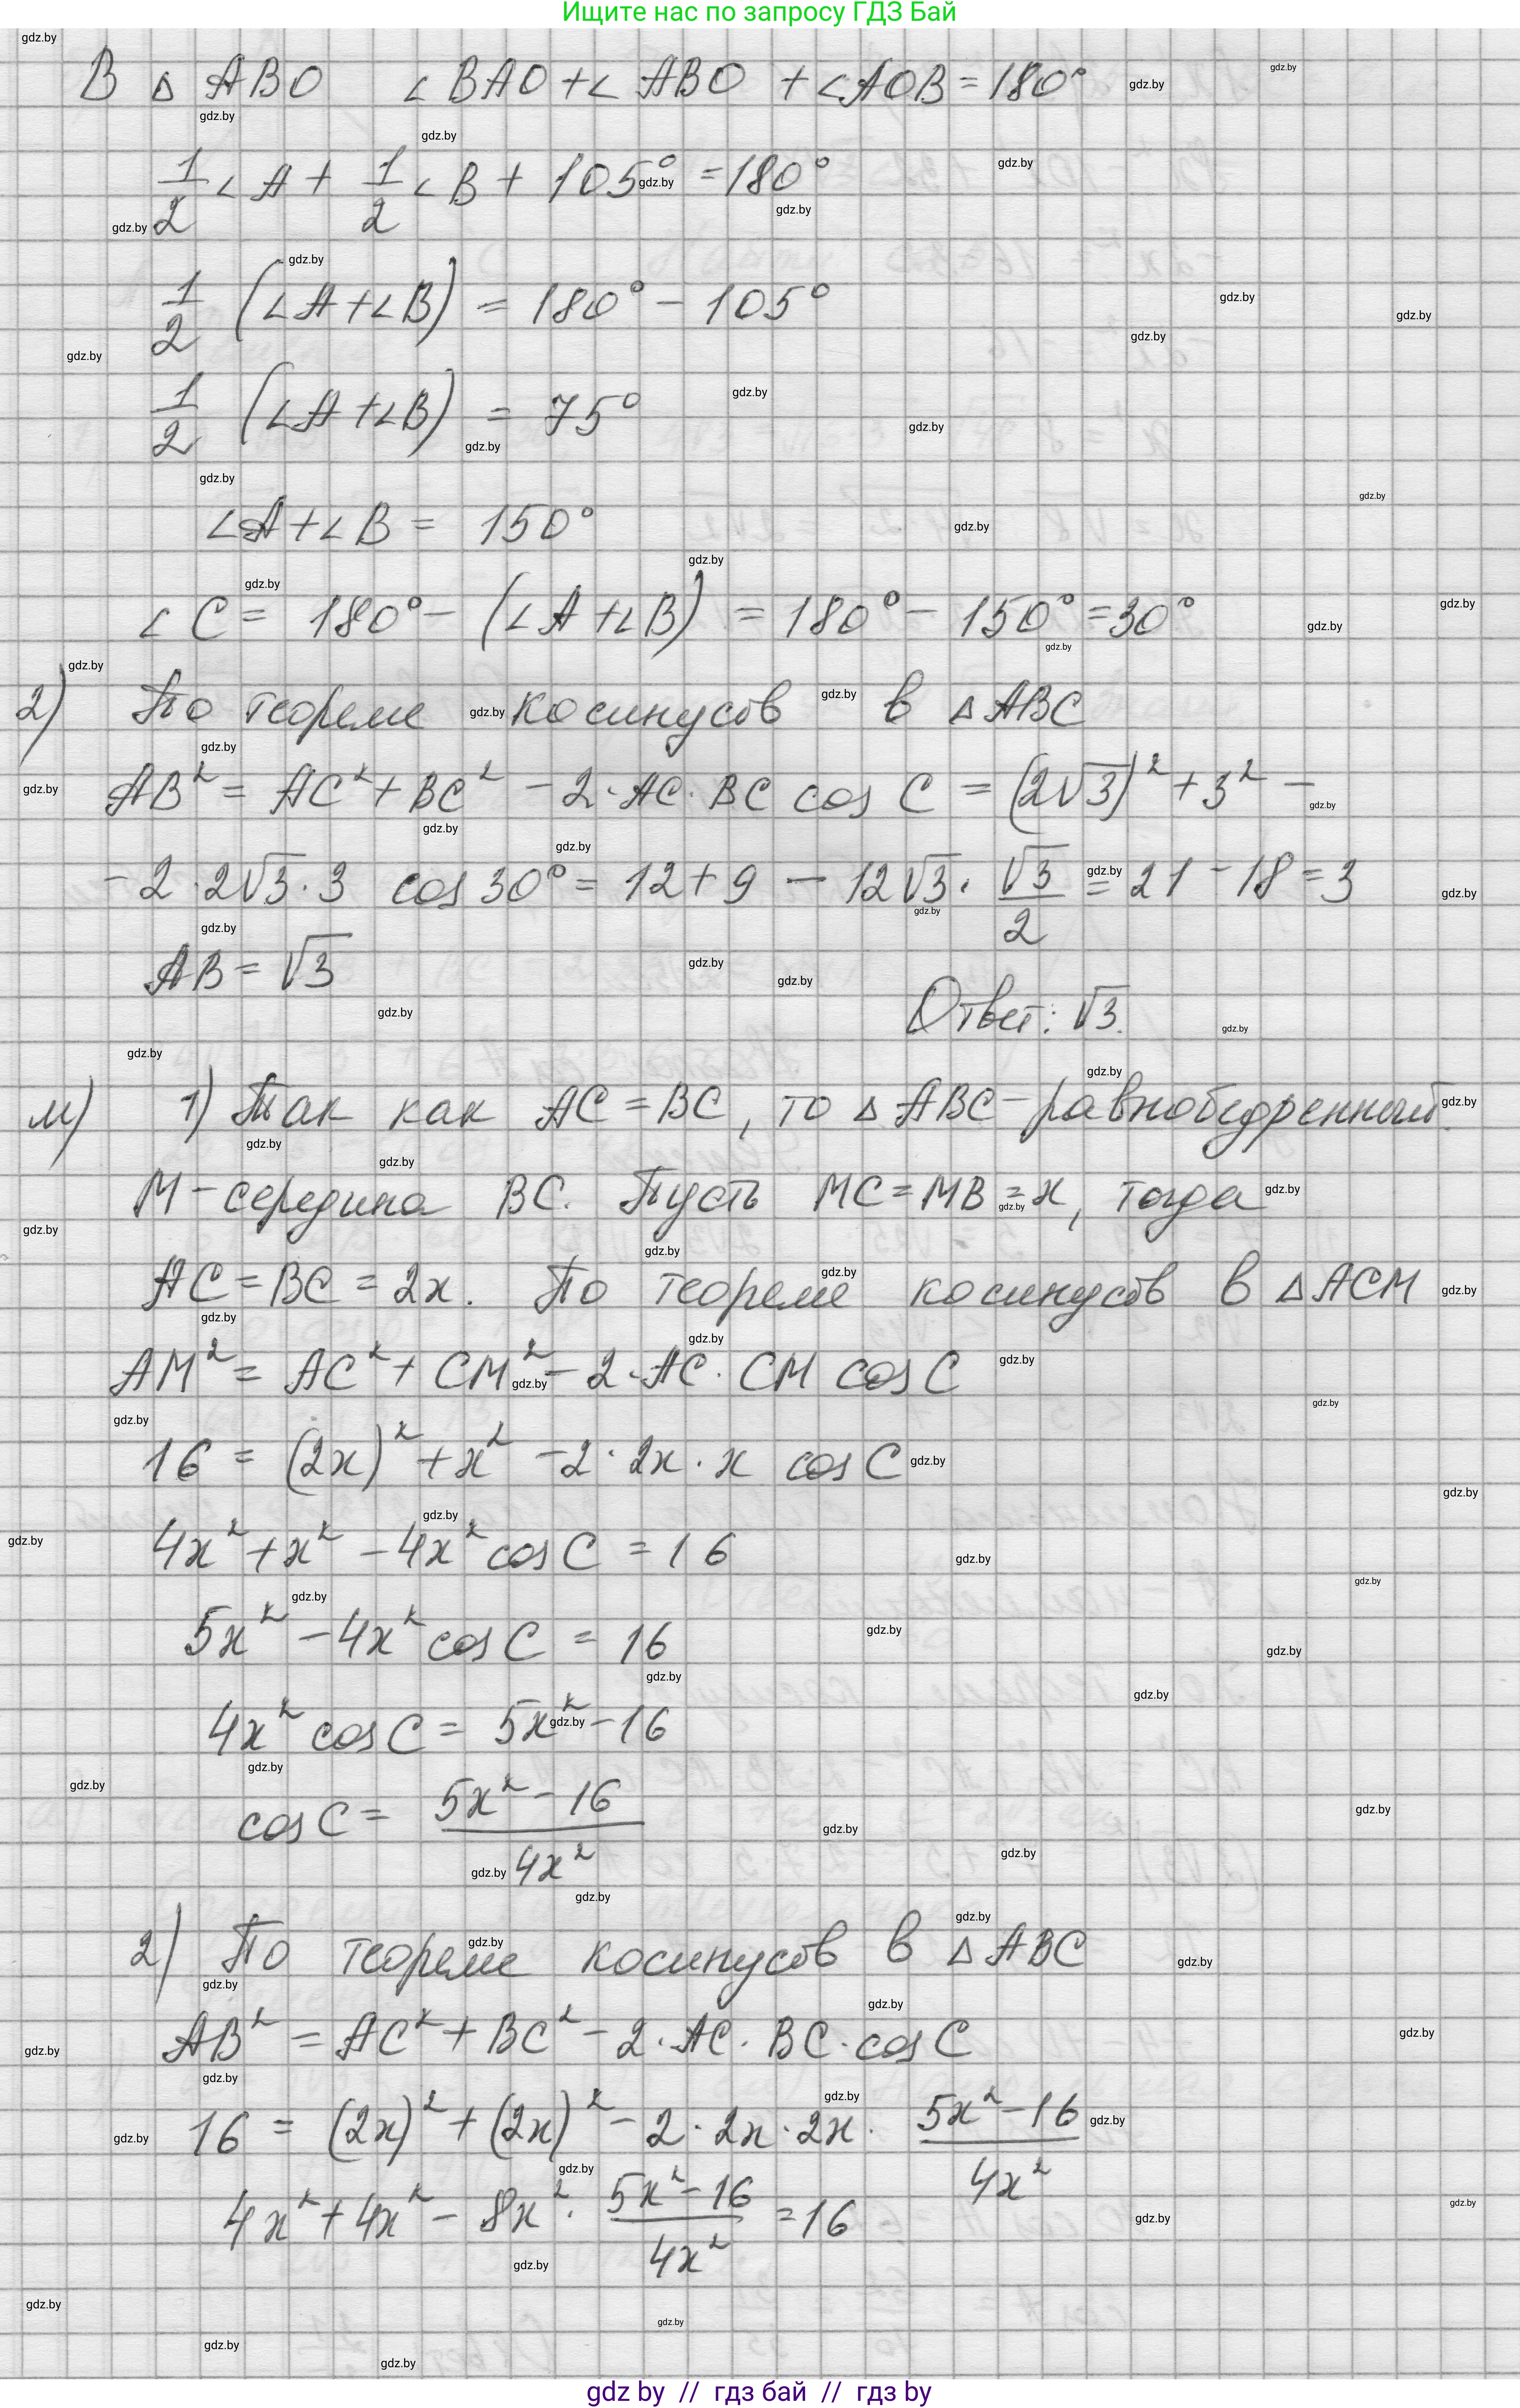 Ищите нас по запросу ГДЗ Бай
В △ ABO ∠BAO + ∠ABO + ∠AOB = 180°
1/2 ∠A + 1/2 ∠B + 105° = 180°
1/2 (∠A + ∠B) = 180° - 105°
1/2 (∠A + ∠B) = 75°
∠A + ∠B = 150°
∠C = 180° - (∠A + ∠B) = 180° - 150° = 30°
2) По теореме косинусов в △ABC
AB² = AC² + BC² - 2·AC·BC cos C = (2√3)² + 3² -
- 2·2√3·3 cos 30° = 12 + 9 - 12√3 · √3/2 = 21 - 18 = 3
AB = √3
Ответ: √3.
м) 1) Так как AC = BC, то △ABC - равнобедренный.
M - середина BC. Пусть MC = MB = x, тогда
AC = BC = 2x. По теореме косинусов в △ACM
AM² = AC² + CM² - 2·AC·CM cos C
16 = (2x)² + x² - 2·2x·x cos C
4x² + x² - 4x² cos C = 16
5x² - 4x² cos C = 16
4x² cos C = 5x² - 16
cos C = (5x² - 16)/4x²
2) По теореме косинусов в △ABC
AB² = AC² + BC² - 2·AC·BC·cos C
16 = (2x)² + (2x)² - 2·2x·2x· (5x² - 16)/4x²
4x² + 4x² - 8x² · (5x² - 16)/4x² = 16
gdz by // гдз бай // гдз by